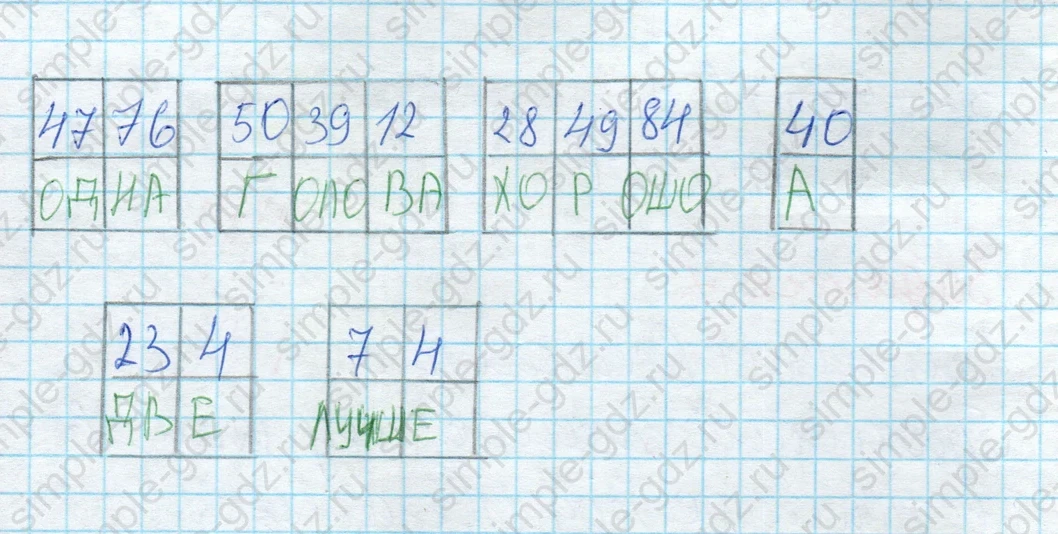 47 76 50 39 12 28 49 84 40
ОД НА Г ОЛО ВА ХО Р ОШО А
23 4 7 4
ДВ Е ЛУЧШ Е
simple-gdz.ru